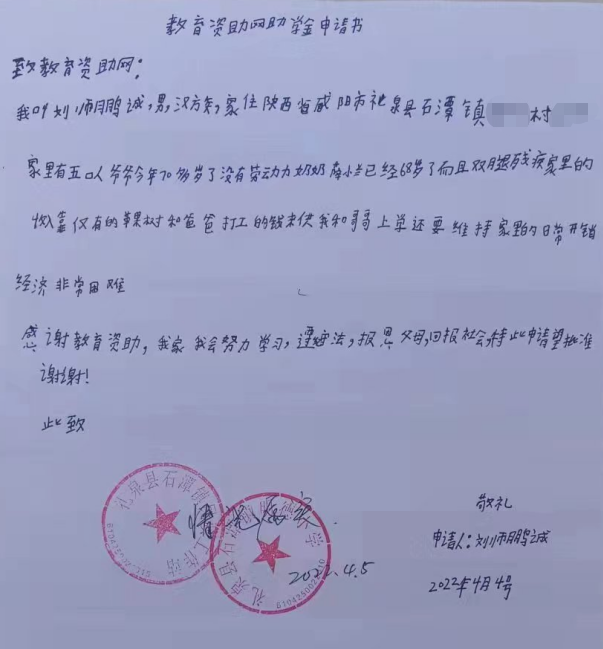 教育资助网助学金申请书
致教育资助网：
我叫刘师鹏诚，男，汉族，家住陕西省咸阳市礼泉县石潭镇 村
家里有五口人爷爷今年70多岁了没有劳动力奶奶 已经68岁了而且双腿残疾家里的
收靠仅有的苹果树和爸爸打工的钱来供我和哥哥上学还要维持家里的日常开销
经济非常困难
感谢教育资助，我家我会努力学习，遵纪守法，报恩父母，回报社会，特此申请望批准
谢谢！
此致
敬礼
申请人：刘师鹏诚
2022年4月4号
情况属实
2022.4.5
礼泉县石潭镇 工作站
礼泉县石潭镇 小学